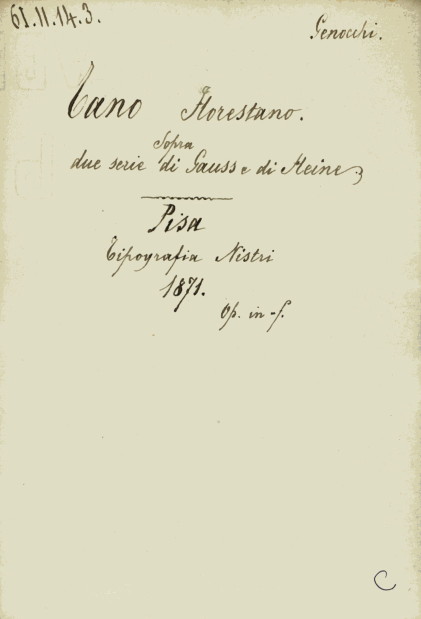 61.II.14.3.
Genocchi.
Tano Florestano.
Sopra
due serie di Gauss e di Heine
Pisa
Tipografia Nistri
1871.
Op. in-f.
C